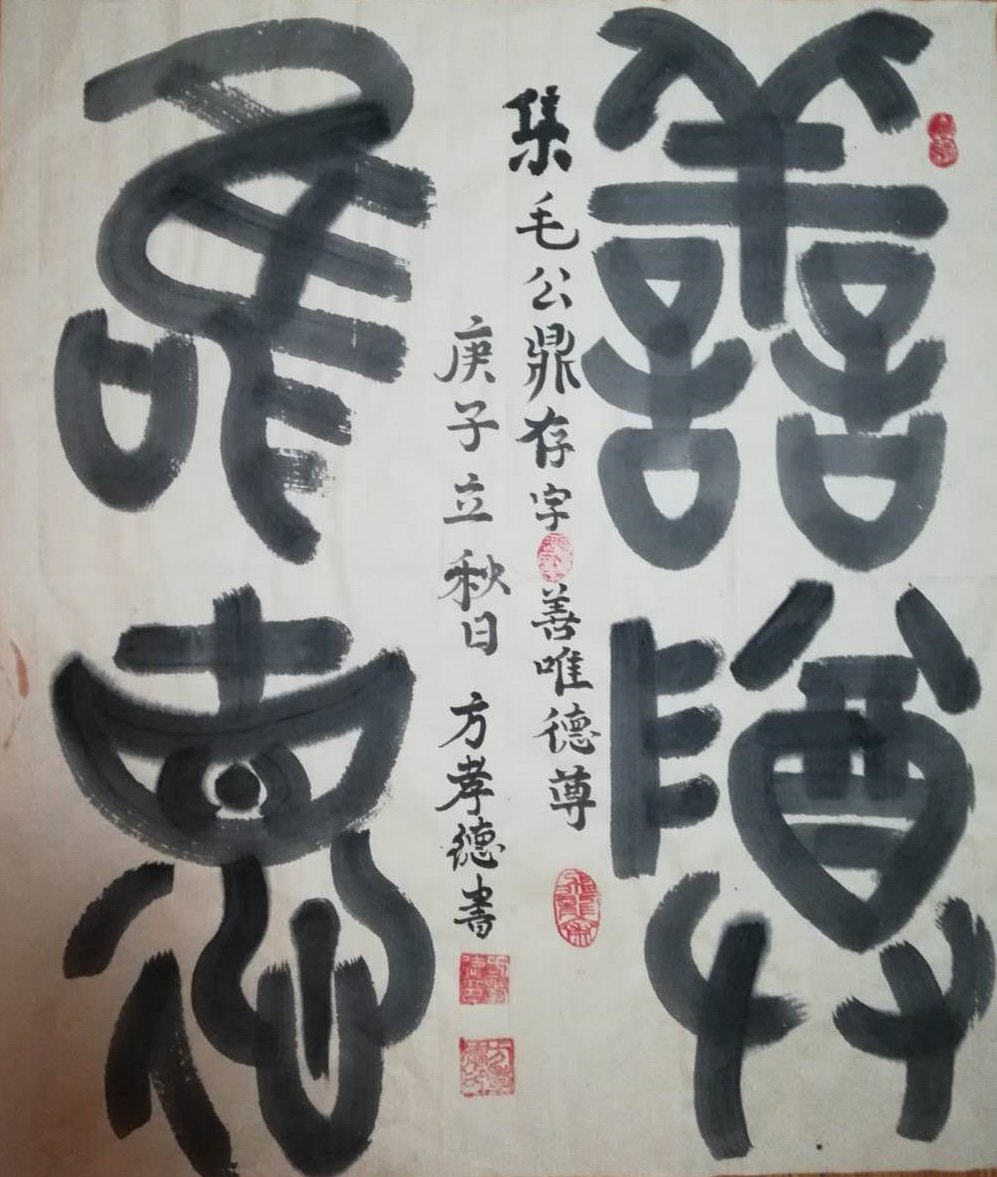 善尊
集毛公鼎存字善唯德尊
庚子立秋日 方孝德書
唯德